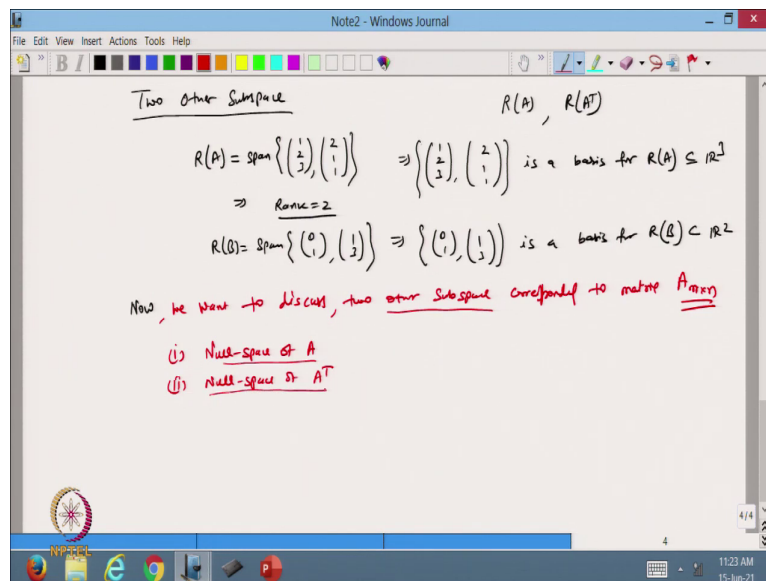 Note2 - Windows Journal
File Edit View Insert Actions Tools Help
B I
Two Other Subspace R(A), R(Aᵀ)
R(A) = span {(1 2 3), (2 1 1)} ⇒ {(1 2 3), (2 1 1)} is a basis for R(A) ⊆ ℝ³
⇒ Rank = 2
R(B) = span {(0 1), (1 3)} ⇒ {(0 1), (1 3)} is a basis for R(B) ⊂ ℝ²
Now, we want to discuss, two other subspace corresponded to matrix A m×n
(i) Null-space of A
(ii) Null-space of Aᵀ
NPTEL
4/4
4
11:23 AM
15-Jun-21